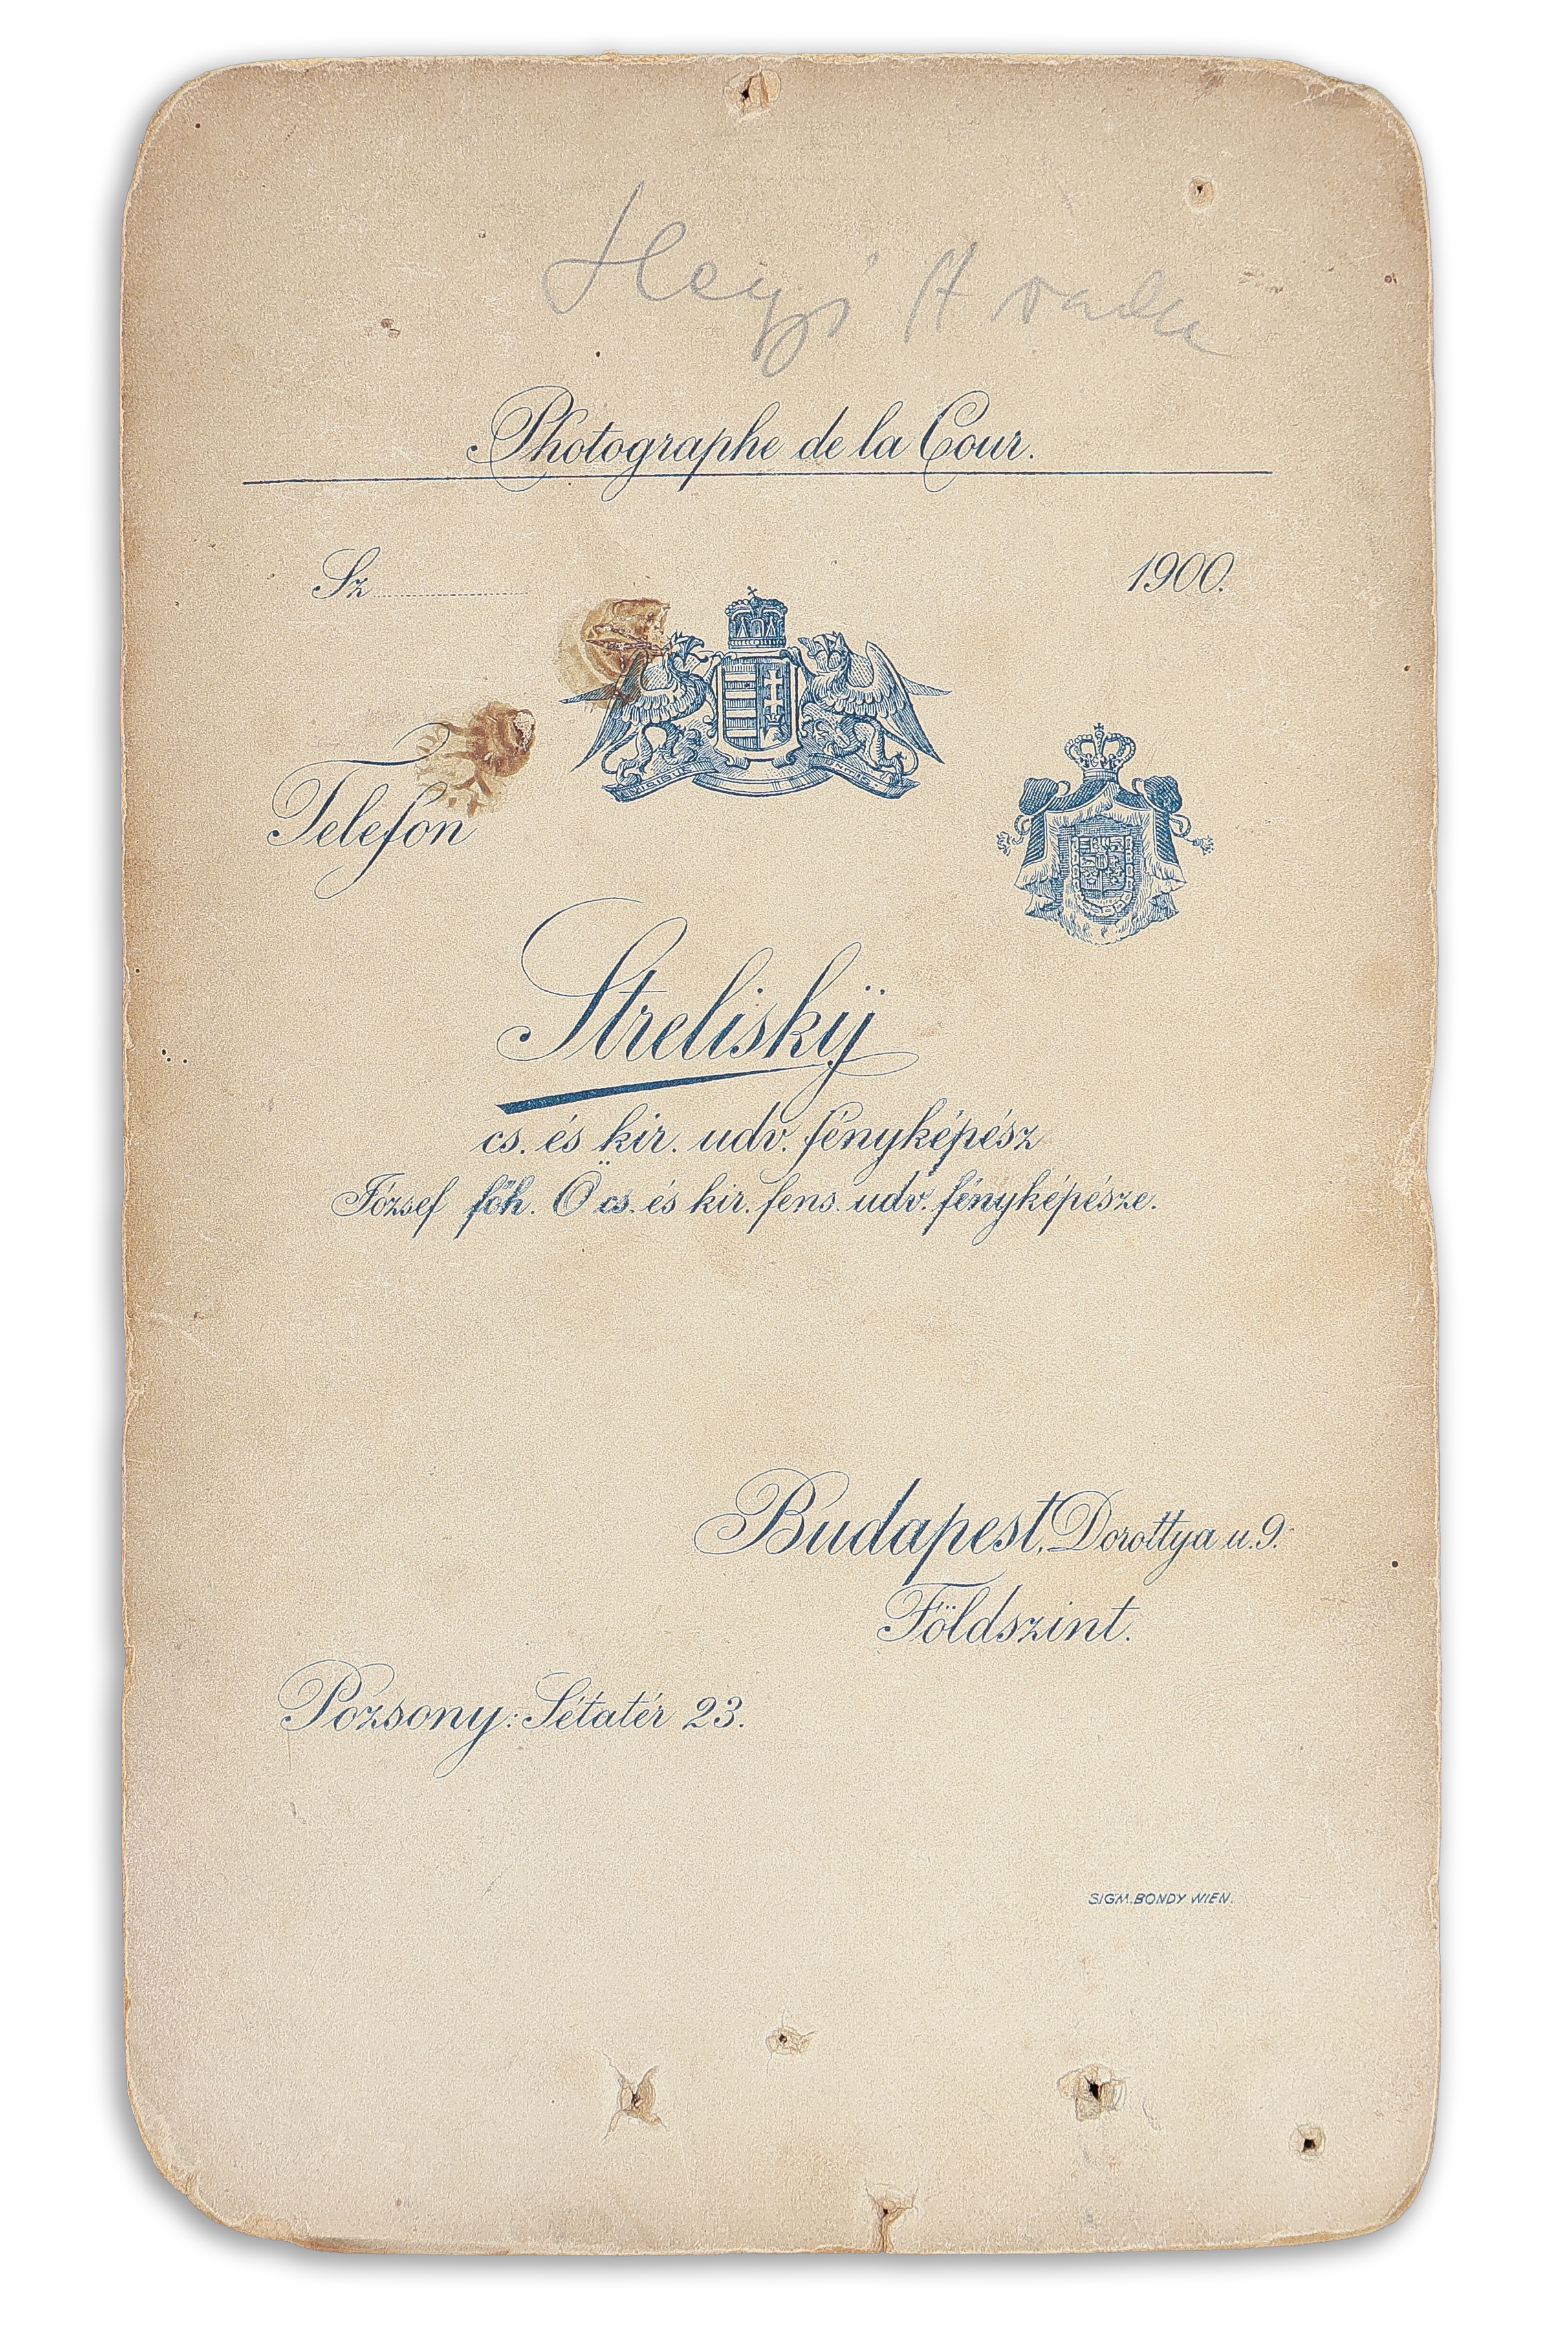 Hegyi Aranka
Photographe de la Cour.
Sz.
1900.
Telefon
Streliskÿ
cs. és kir. udv. fényképész
József főh. Ö cs. és kir. fens. udv. fényképésze.
Budapest, Dorottya u. 9.
Földszint.
Pozsony: Sétatér 23.
SIGM. BONDY WIEN.